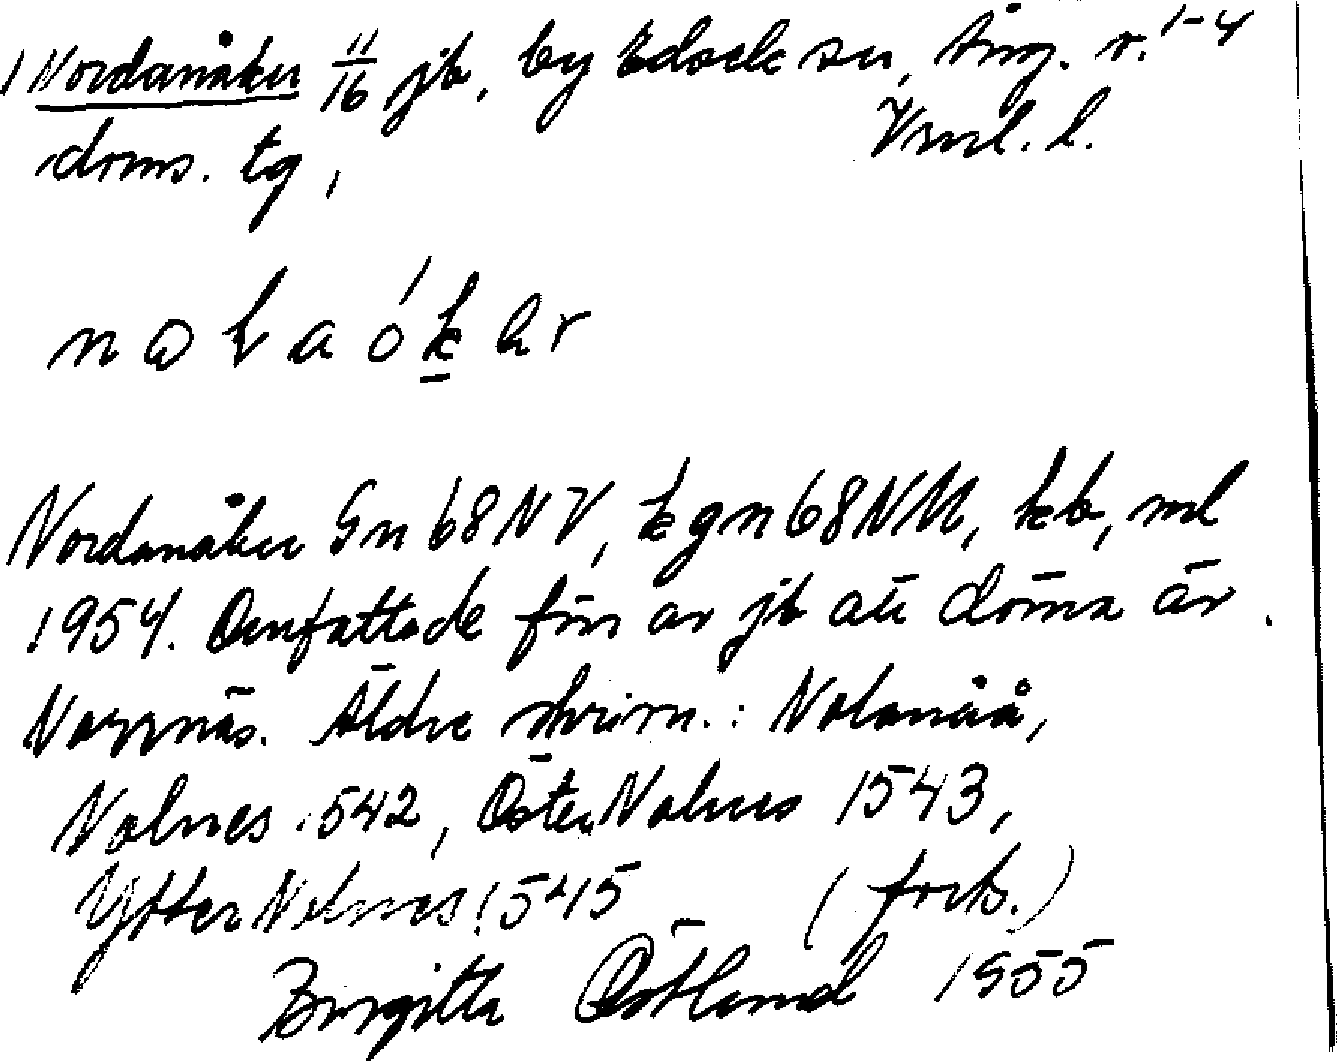 1 Nordanåker 11/16 jb, by Edsele sn, Ång. v. 1-4
doms. tg, Vrnl. l.
Nordanåker Gn 68 NV, kgn 68 NM, kb, ml
1954. Omfattade förr av jb att döma äv.
Norrnäs. Äldre skrivn.: Nolanåå,
Nolnes 1542, Öster Nolnes 1543,
Ytter Nolnes 1545 (forts.)
Birgitta Östlund 1955